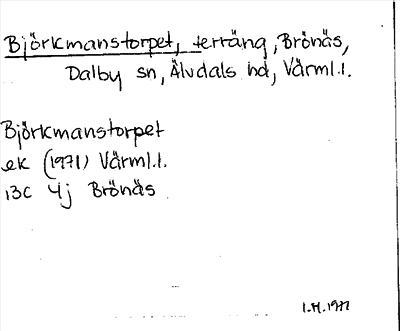 Björkmanstorpet, terräng, Brönäs,
Dalby sn, Älvdals hd, Värml.l.
Björkmanstorpet
ek (1971) Värml.l.
13C 4j Brönäs
I.H. 1977